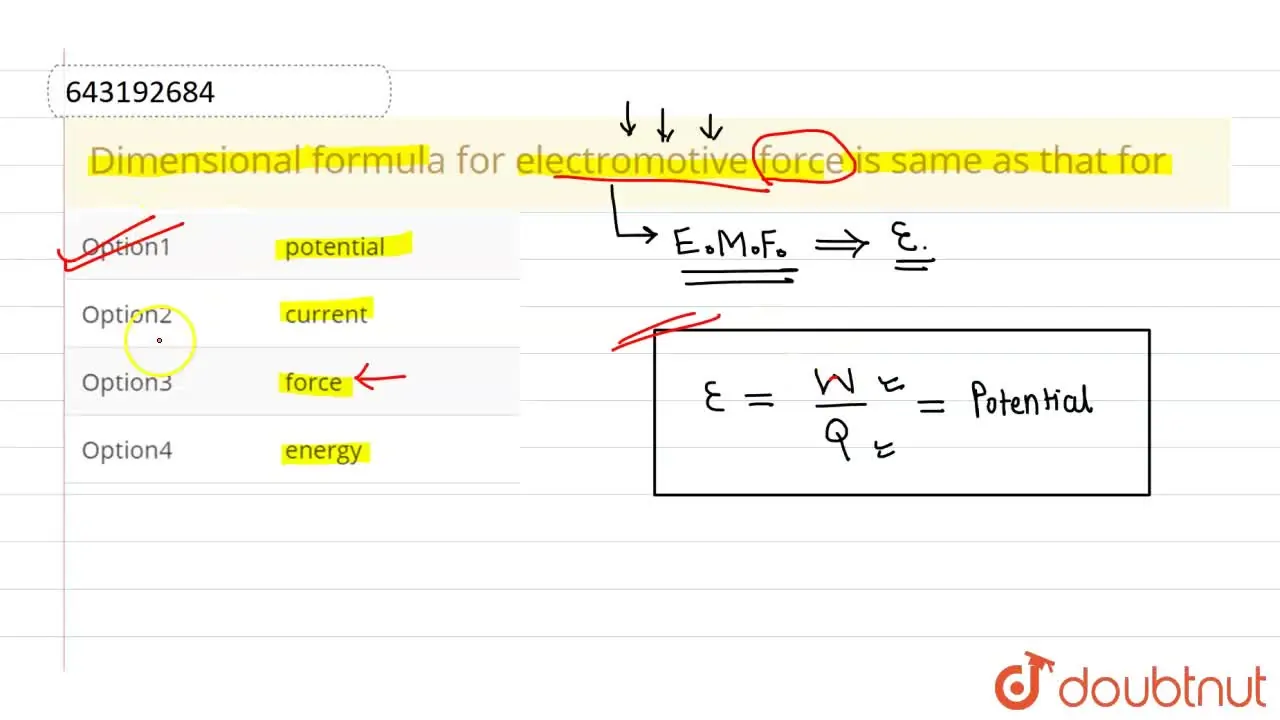 643192684
Dimensional formula for electromotive force is same as that for
Option1 potential
Option2 current
Option3 force
Option4 energy
E.M.F. ⇒ ε.
ε = W/Q = Potential
doubtnut